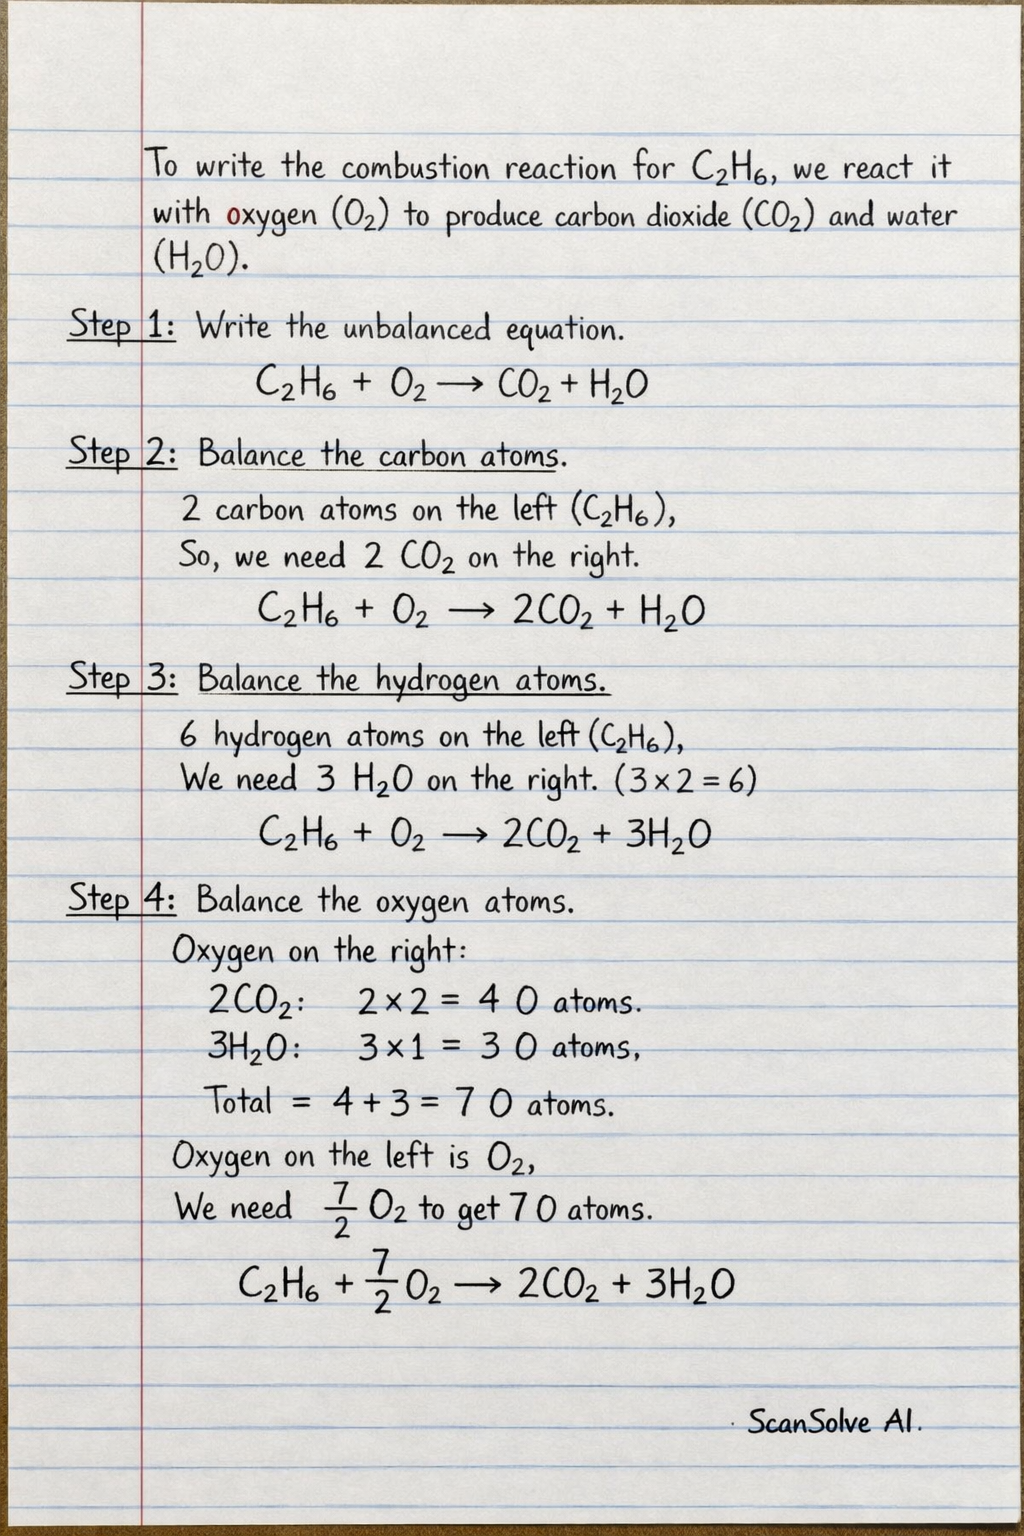 To write the combustion reaction for C₂H₆, we react it
with oxygen (O₂) to produce carbon dioxide (CO₂) and water
(H₂O).
Step 1: Write the unbalanced equation.
C₂H₆ + O₂ ⟶ CO₂ + H₂O
Step 2: Balance the carbon atoms.
2 carbon atoms on the left (C₂H₆),
So, we need 2 CO₂ on the right.
C₂H₆ + O₂ ⟶ 2CO₂ + H₂O
Step 3: Balance the hydrogen atoms.
6 hydrogen atoms on the left (C₂H₆),
We need 3 H₂O on the right. (3×2=6)
C₂H₆ + O₂ ⟶ 2CO₂ + 3H₂O
Step 4: Balance the oxygen atoms.
Oxygen on the right:
2CO₂: 2×2 = 4 O atoms.
3H₂O: 3×1 = 3 O atoms,
Total = 4+3 = 7 O atoms.
Oxygen on the left is O₂,
We need 7/2 O₂ to get 7 O atoms.
C₂H₆ + 7/2 O₂ ⟶ 2CO₂ + 3H₂O
ScanSolve AI.